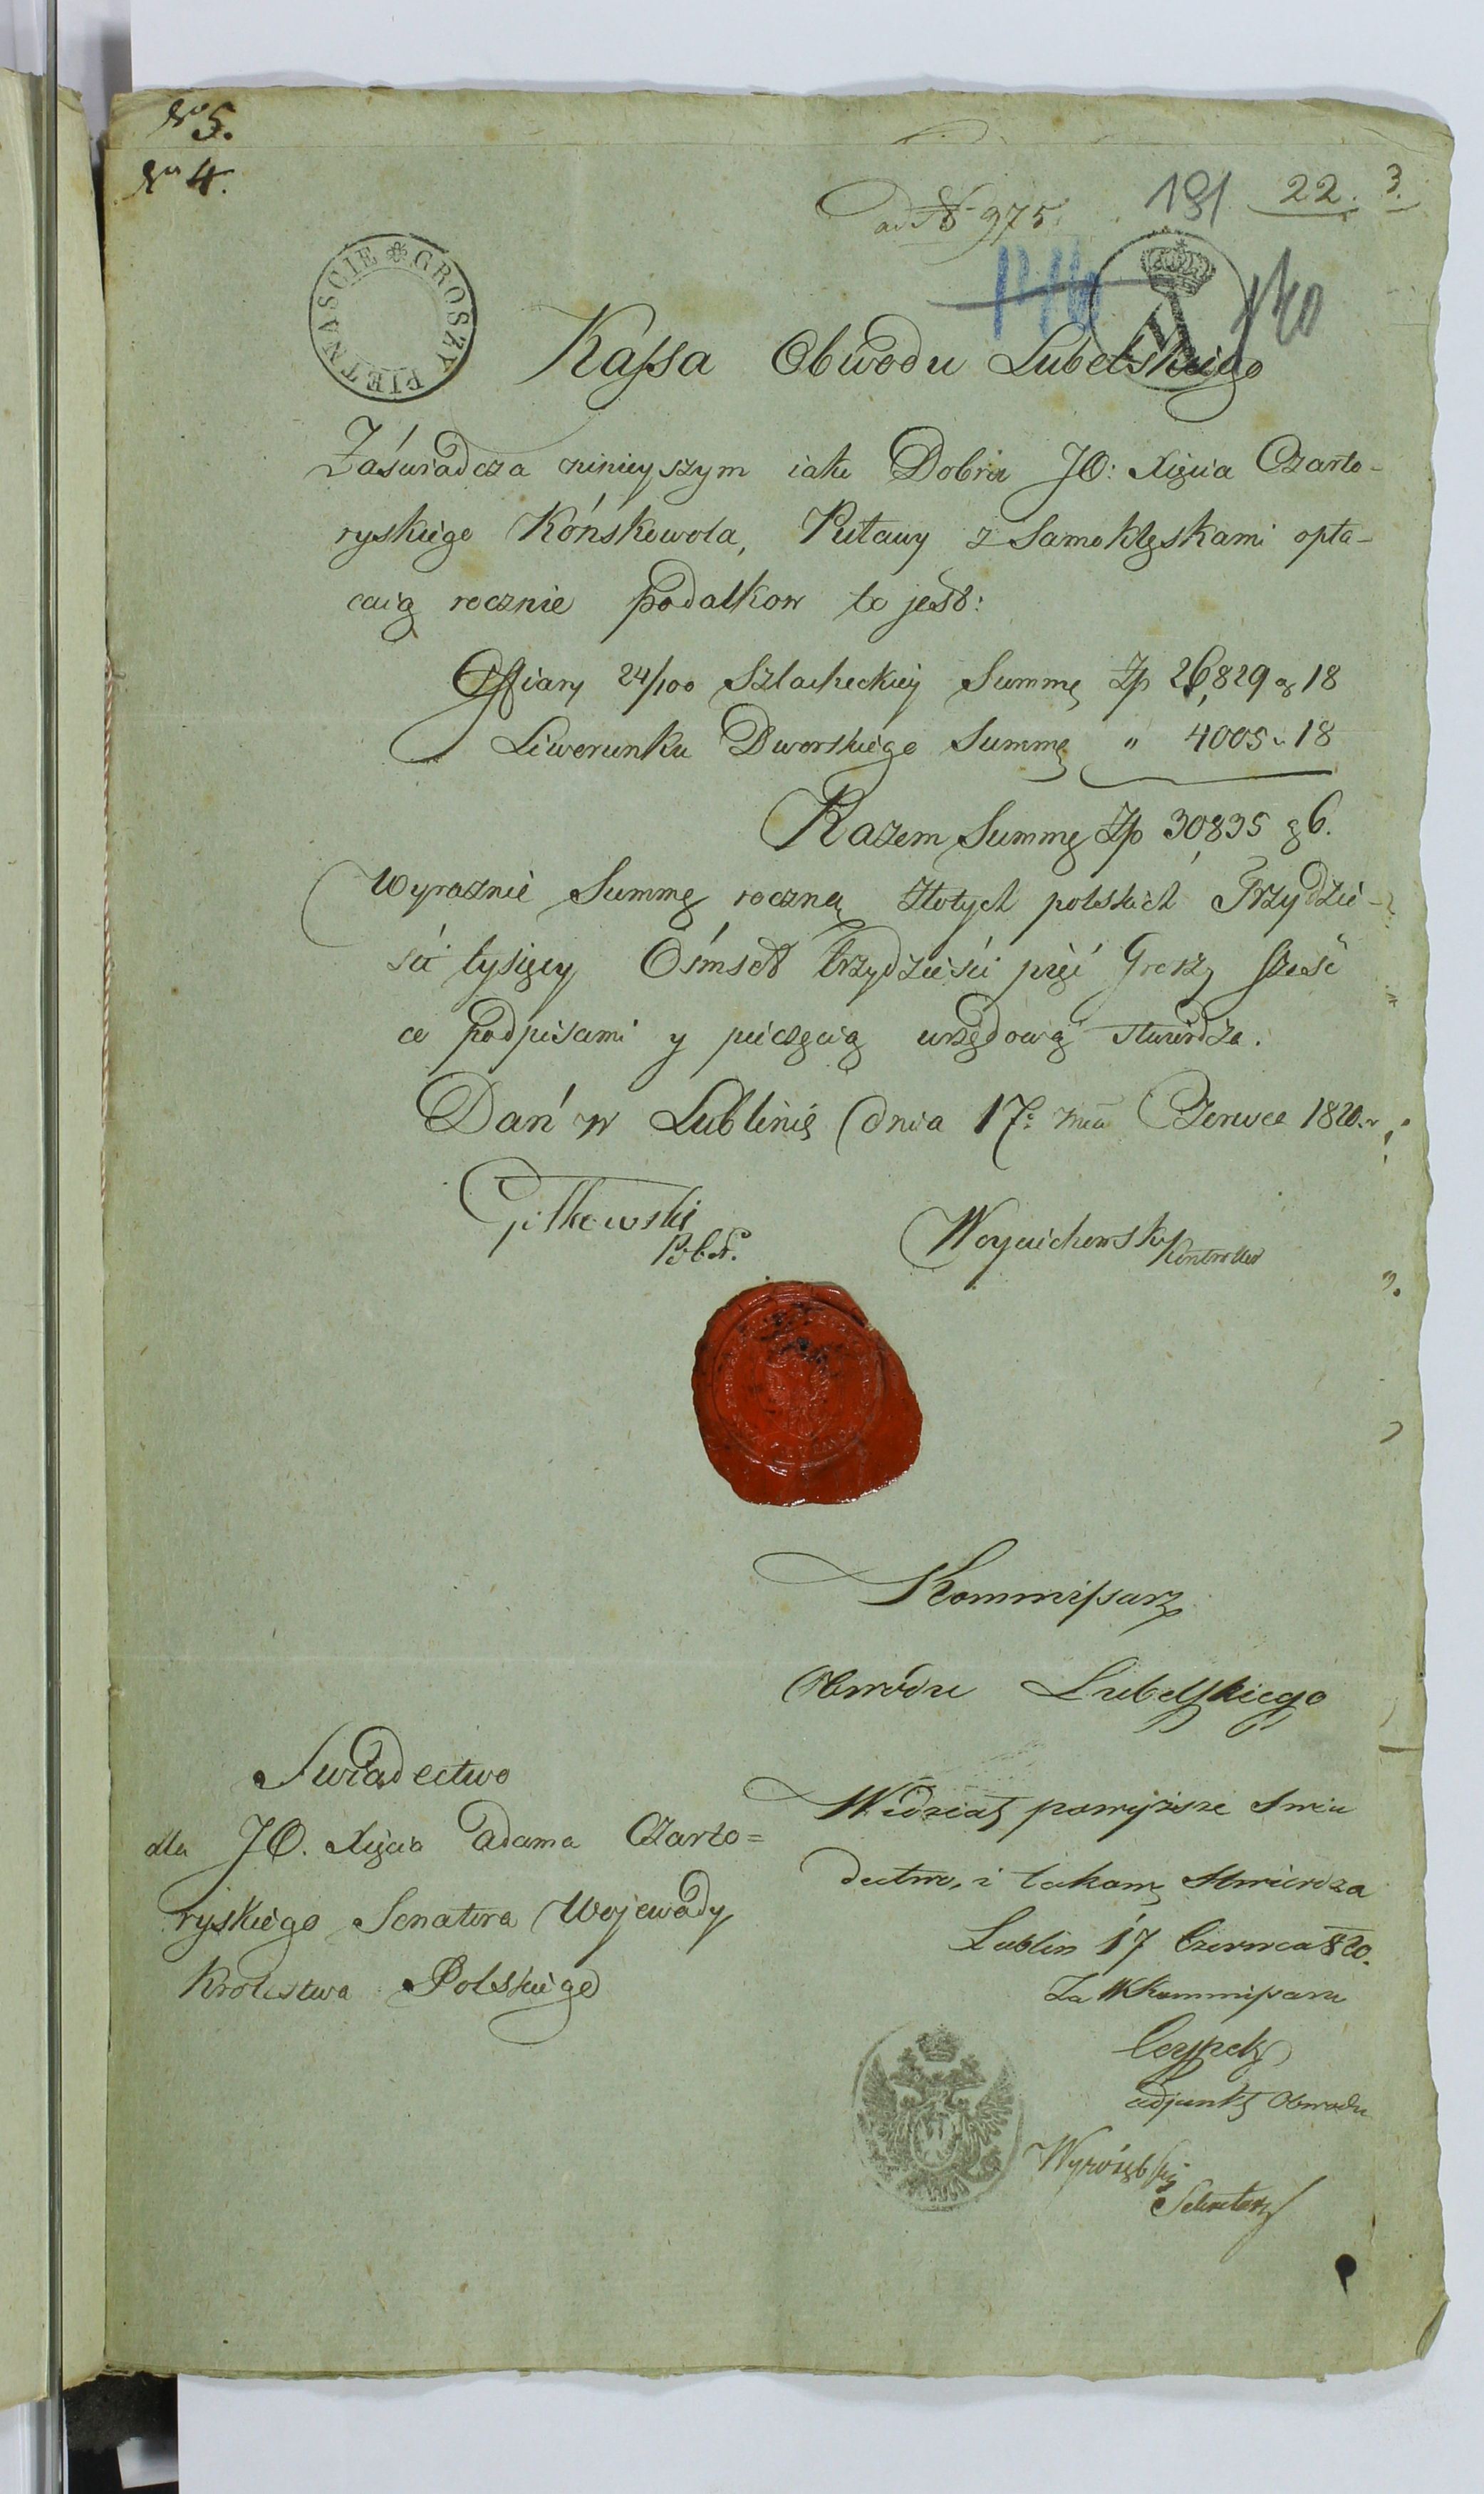 No 5.
No 4.
ad No 975.
191 22. 3.
140
GROSZY PIETNASCIE
Kassa Obwodu Lubelskiego
Zaświadcza ninieyszym iako Dobra JO: Xięcia Czarto-
ryskiego Końskowola, Puławy z Samoklęskami opła-
caią rocznie podatkow to jest:
Offiary 24/100 Szlacheckiey Summę Zp 26,829 g 18
Liwerunku Dworskiego Summę " 4005 " 18
Razem Summę Zp 30,835 g 6.
Wyraznie Summę roczną złotych polskich Trzydzie-
ści tysięcy Ośmset trzydzieści pięć Groszy sześć
co podpisami y pieczęcią urzędową stwierdza.
Dań w Lublinie dnia 17o mca Czerwca 1820. r
Woyciechowski Kontroller
Kommissarz
Obwodu Lubelskiego
Swiadectwo
dla JO. Xięcia Adama Czarto=
ryskiego Senatora Wojewody
Krolestwa Polskiego
Widział powyższe Swia
dectwo, i takowe stwierdza
Lublin 17 Czerwca 820.
Za W Kommissarza
adjunkt Obwodu
Sekretarz